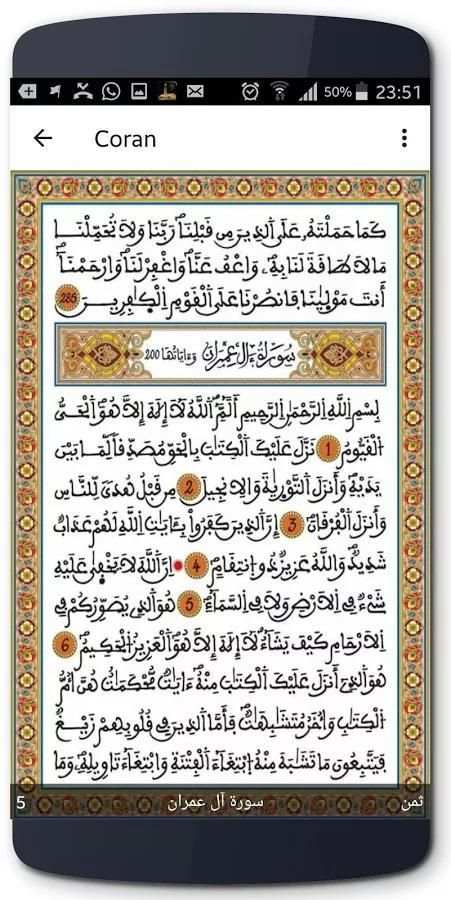 50% 23:51
Coran
كَمَا حَمَلْتَهُۥ عَلَى اَ۬لذِينَ مِن قَبْلِنَا رَبَّنَا وَلَا تُحَمِّلْنَا
مَا لَا طَاقَةَ لَنَا بِهِۦ وَاعْفُ عَنَّا وَاغْفِرْ لَنَا وَارْحَمْنَا
أَنتَ مَوْلَيٰنَا فَانصُرْنَا عَلَى اَ۬لْقَوْمِ اِ۬لْكٰفِرِينَ 285
سُورَةُ ءَالِ عِمْرَانَ وَءَايَاتُهَا 200
بِسْمِ اِ۬للَّهِ اِ۬لرَّحْمَٰنِ اِ۬لرَّحِيمِ أَلَٓمِّٓ اَ۬للَّهُ لَآ إِلَٰهَ إِلَّا هُوَ اَ۬لْحَىُّ
اُ۬لْقَيُّومُ 1 نَزَّلَ عَلَيْكَ اَ۬لْكِتَٰبَ بِالْحَقِّ مُصَدِّقاً لِّمَا بَيْنَ
يَدَيْهِ وَأَنزَلَ اَ۬لتَّوْرَيٰةَ وَالِانجِيلَ 2 مِن قَبْلُ هُدىً لِّلنَّاسِ
وَأَنزَلَ اَ۬لْفُرْقَانَ 3 إِنَّ اَ۬لذِينَ كَفَرُواْ بِـَٔايَٰتِ اِ۬للَّهِ لَهُمْ عَذَابٌ
شَدِيدٌ وَاللَّهُ عَزِيزٌ ذُو اُ۪نتِقَامٍ 4 اِنَّ اَ۬للَّهَ لَا يَخْفَىٰ عَلَيْهِ
شَےْءٌ فِے اِ۬لَارْضِ وَلَا فِے اِ۬لسَّمَآءِ 5 هُوَ اَ۬لذِے يُصَوِّرُكُمْ فِے
اِ۬لَارْحَامِ كَيْفَ يَشَآءُ لَآ إِلَٰهَ إِلَّا هُوَ اَ۬لْعَزِيزُ اُ۬لْحَكِيمُ 6
هُوَ اَ۬لذِےٓ أَنزَلَ عَلَيْكَ اَ۬لْكِتَٰبَ مِنْهُ ءَايَٰتٌ مُّحْكَمَٰتٌ هُنَّ أُمُّ
اُ۬لْكِتَٰبِ وَأُخَرُ مُتَشَٰبِهَٰتٌ فَأَمَّا اَ۬لذِينَ فِے قُلُوبِهِمْ زَيْغٌ
فَيَتَّبِعُونَ مَا تَشَٰبَهَ مِنْهُ اُ۪بْتِغَآءَ اَ۬لْفِتْنَةِ وَابْتِغَآءَ تَاوِيلِهِۦ وَمَا
ثمن سورة آل عمران 5